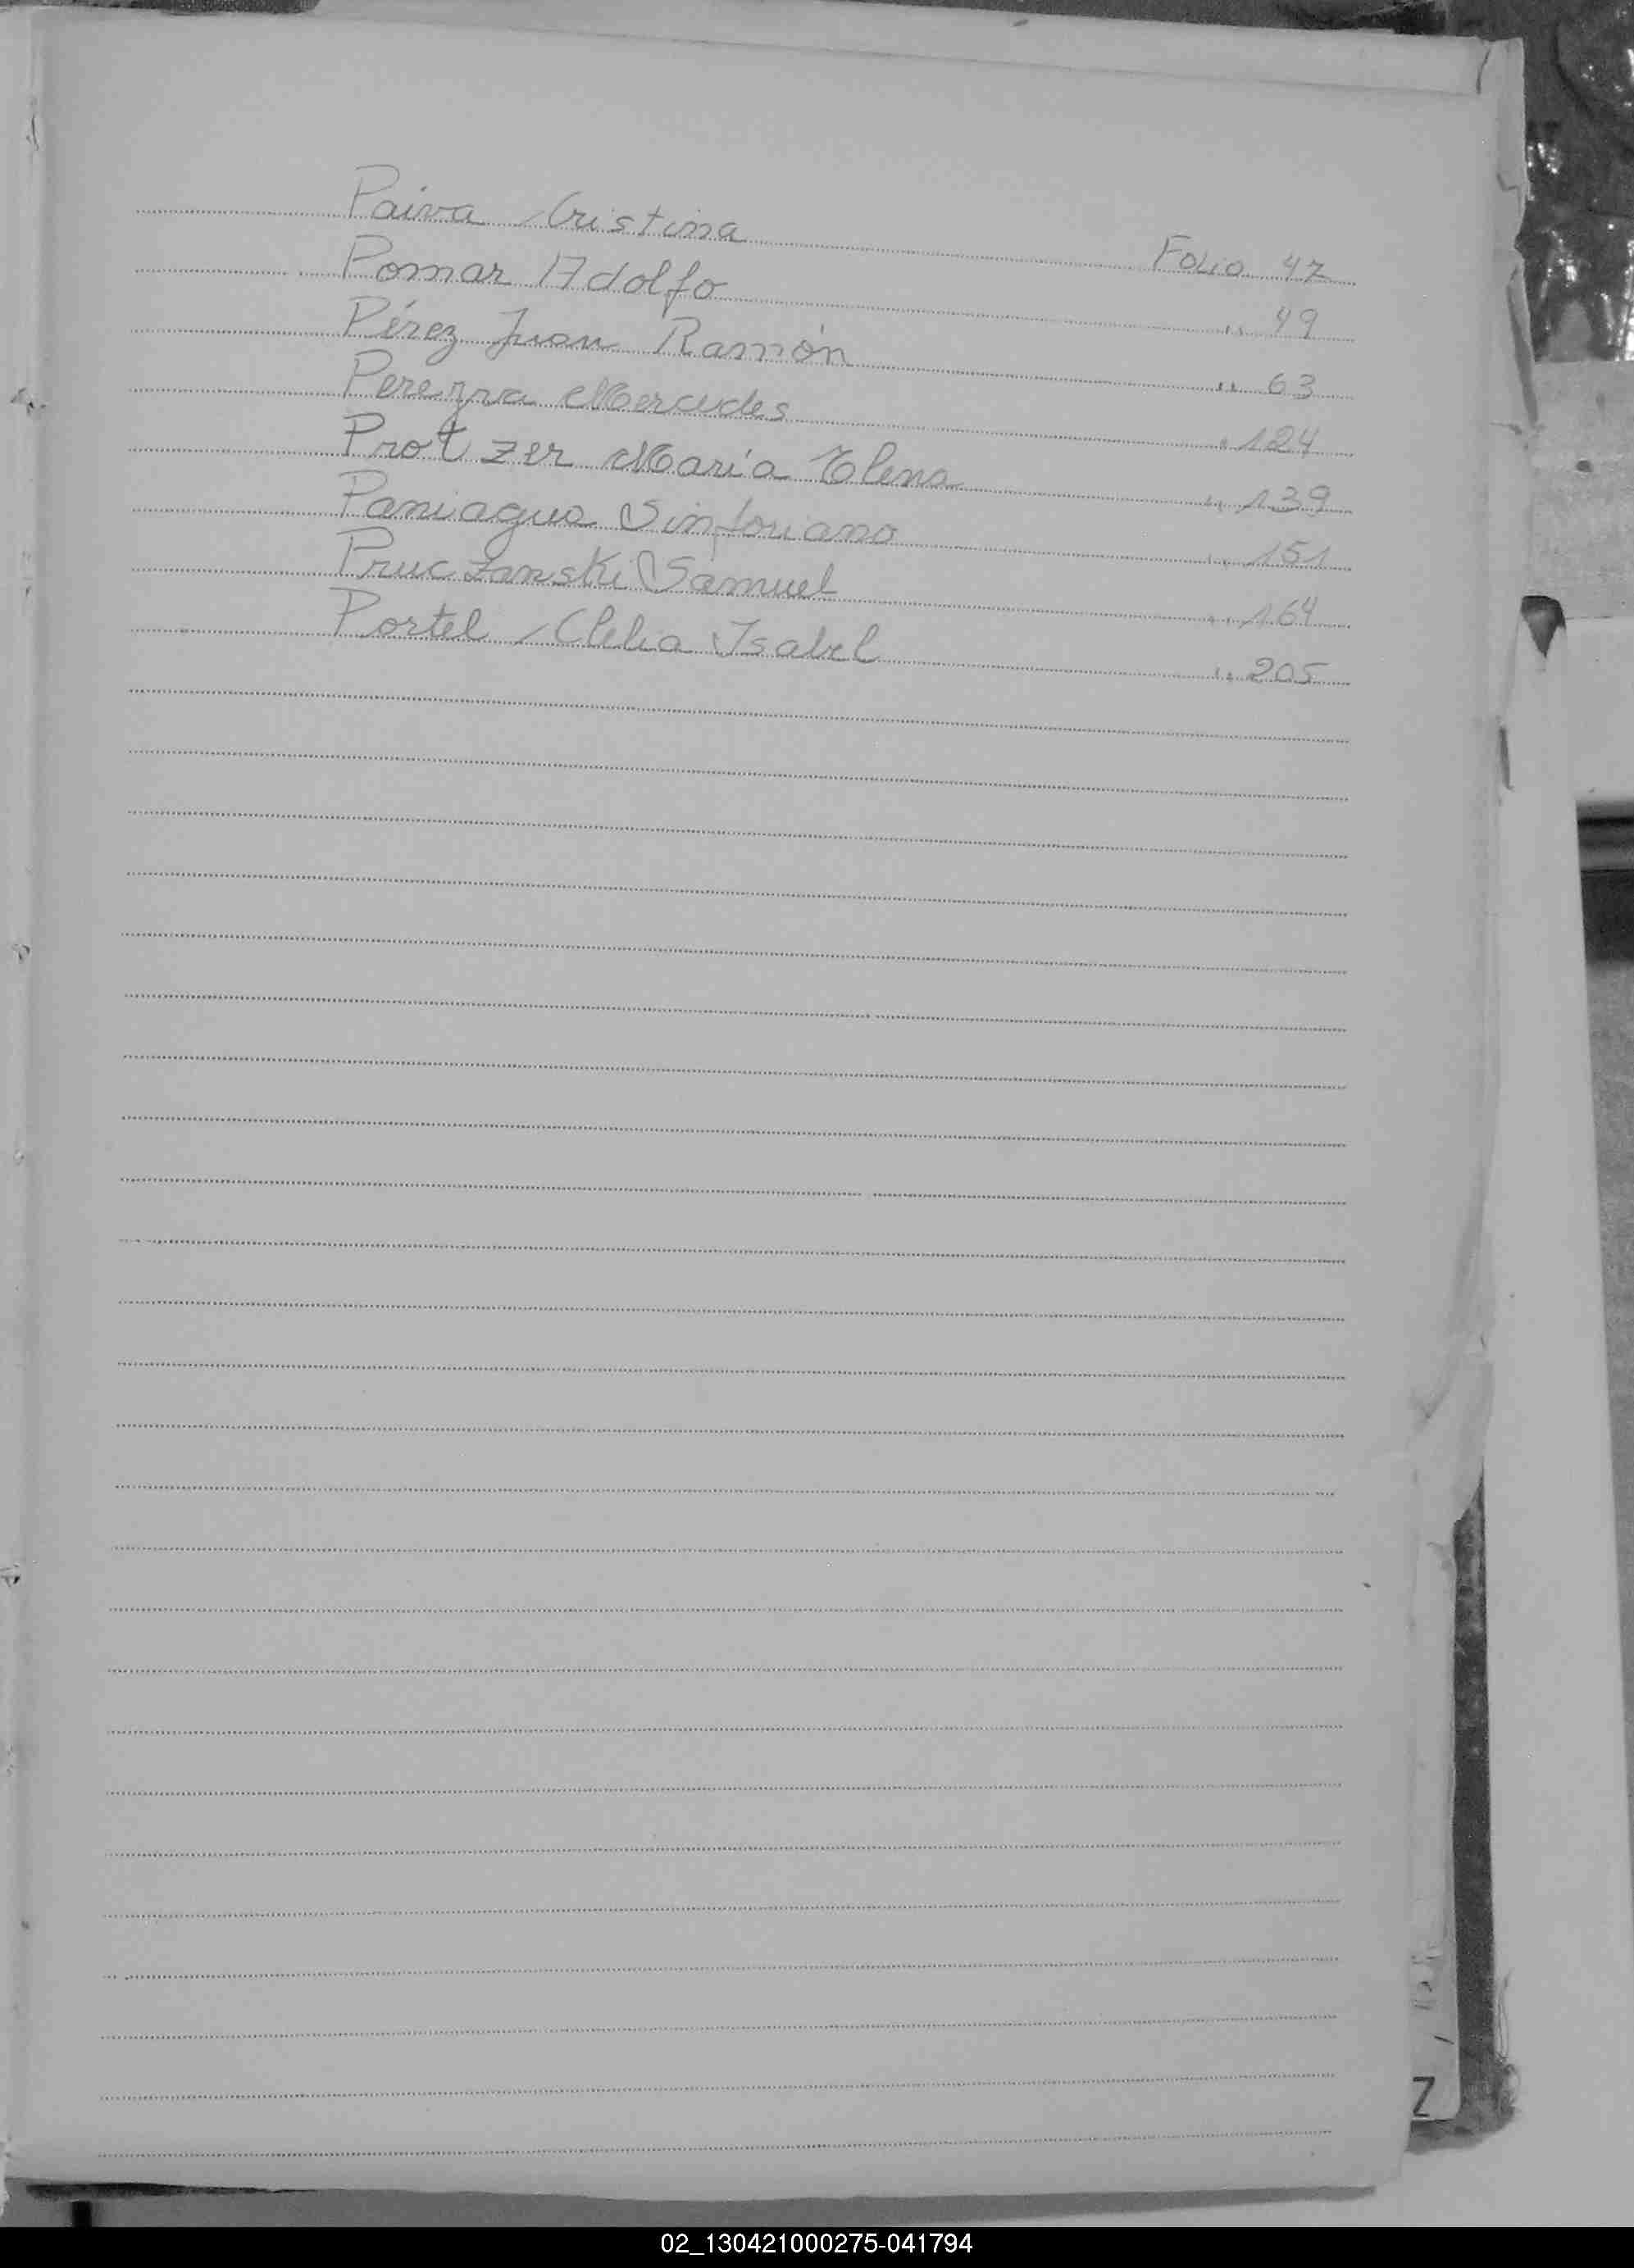 Paiva Cristina Folio 47
Pomar Adolfo " 49
Pérez Juan Ramón " 63
Pereyra Mercedes " 124
Protzer María Elena " 139
Paniagua Sinforiano " 151
Pruczanski Samuel " 164
Portel Clelia Isabel " 205
Z
02_130421000275-041794